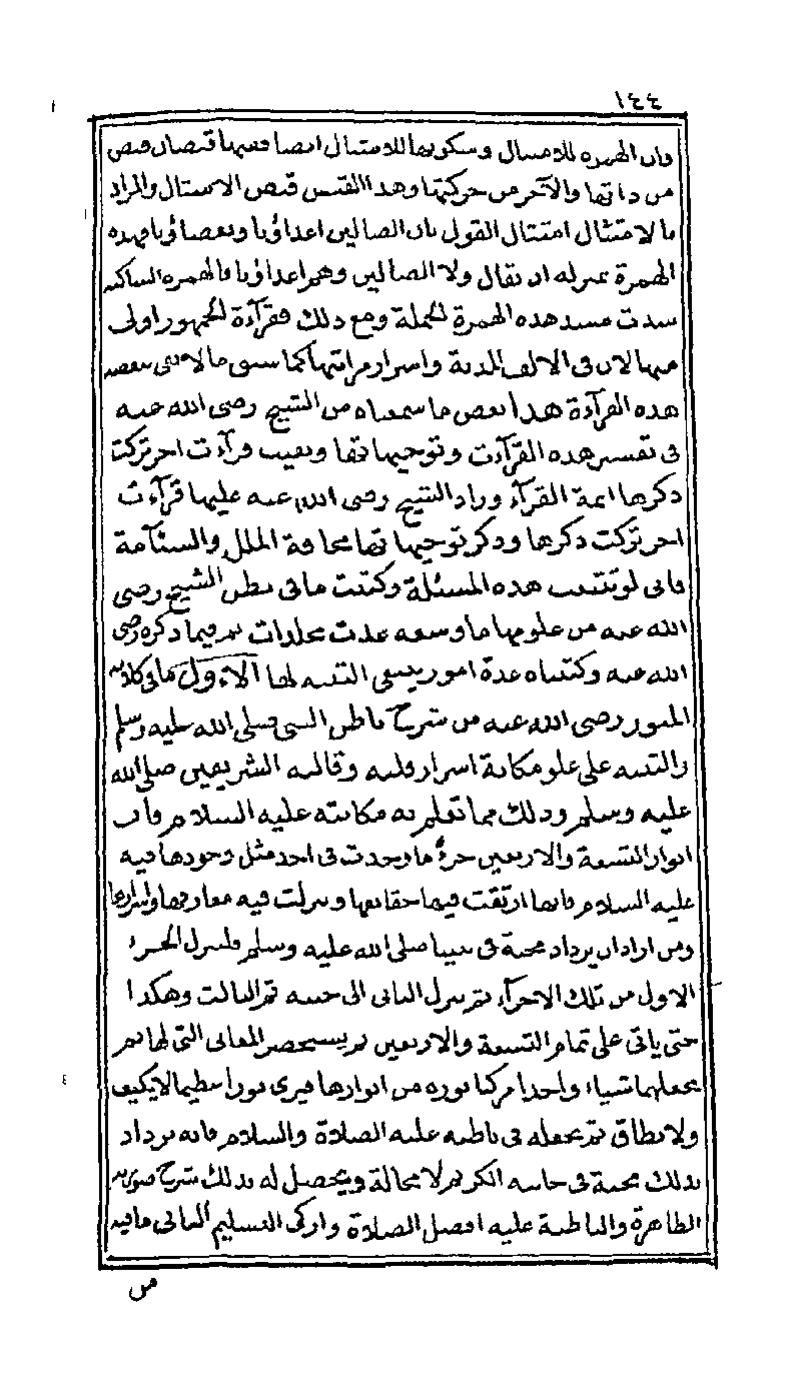 ١٤٤
وان الهمزة للامتثال وسكونها للامتثال ايضا ففيها قبضان قبض
من ذاتها والآخر من حركتها وهذا القبض قبض الامتثال والمراد
بالامتثال امتثال القول بان الضالين اعداؤنا وبغضاؤنا فهذه
الهمزة بمنزلة ان يقال ولا الضالين وهم اعداؤنا فالهمزة الساكنة
سدت مسد هذه الهمزة الجملة ومع ذلك فقرآءة الجمهور اولى
منها لان في الالف المدية واسرار مراتبها كما سبق ما لا تفي ببعضه
هذه القرآءة هذا بعض ما سمعناه من الشيخ رضى الله عنه
فى تفسير هذه القرآءت وتوجيهاتها وبقيت قرآءت اخر تركت
ذكرها ايمة القرآء وزاد الشيخ رضى الله عنه عليها قرآءت
اخر تركت ذكرها وذكر توجيهاتها مخافة الملل والسئآمة
فانى لو تتبعت هذه المسئلة وكتبت ما فى بطن الشيخ رضى
الله عنه من علومها ما وسعه عدت مجلدات ثم فيما ذكره رضى
الله عنه وكتبناه عدة امور ينبغى التنبه لها الاول ما فى كلامه
المنور رضى الله عنه من شرح باطن النبى صلى الله عليه وسلم
والتنبه على علو مكانة اسرار قلبه وقالبه الشريفين صلى الله
عليه وسلم وذلك مما تعلم به مكانته عليه السلام وان
انوار التسعة والاربعين جزءًا ما وجدت فى احد مثل وجودها فيه
عليه السلام فانها ارتقت فيها حقائقها ونزلت فيه معارفها واسرارها
ومن اراد ان يزداد محبة فى نبينا صلى الله عليه وسلم فلينزل الجزء
الاول من تلك الاجزآء ثم ينزل الثانى الى جنبه ثم الثالث وهكذا
حتى ياتى على تمام التسعة والاربعين ثم يستحضر المعانى التى لها ثم
يجعلها شيئا واحدا مركبا نوره من انوارها فيرى نورا عظيما لا يكيف
ولا يطاق ثم يجعله فى باطنه عليه الصلاة والسلام فانه يزداد
بذلك محبة فى جانبه الكريم لا محالة ويحصل له بذلك شرح صورته
الظاهرة والباطنة عليه افضل الصلاة وازكى التسليم الثانى ما فيه
من